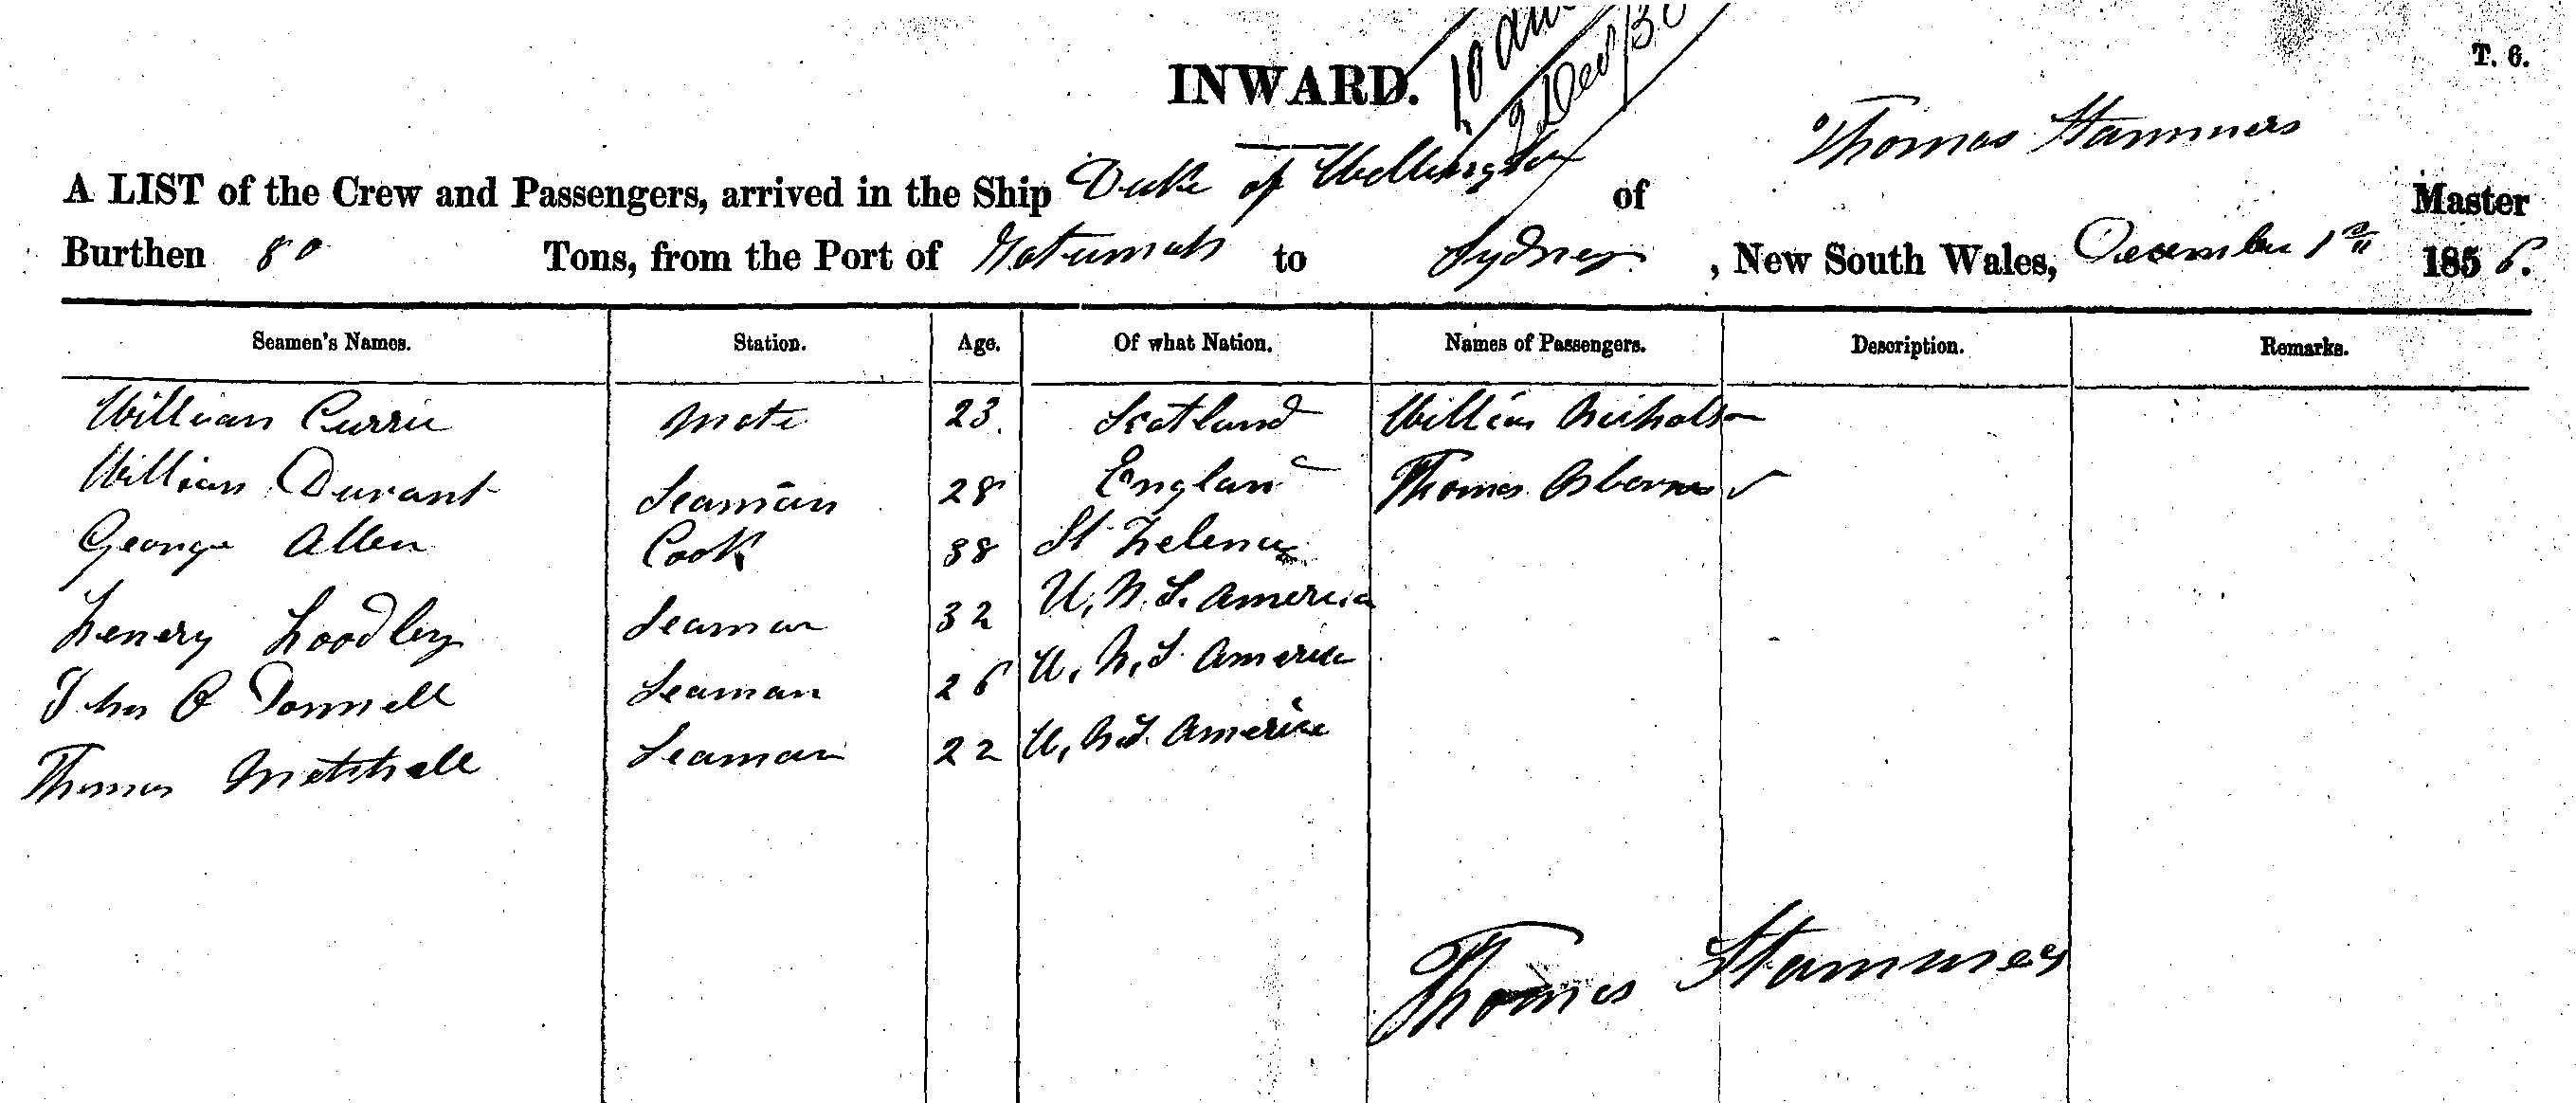 T. 6.
INWARD.
2 Dec/56
Thomas Stammers
A LIST of the Crew and Passengers, arrived in the Ship Duke of Wellington of Master
Burthen 80 Tons, from the Port of Rotumah to Sydney, New South Wales, December 1st 1856.
Seamen's Names. Station. Age. Of what Nation. Names of Passengers. Description. Remarks.
William Currie Mate 23. Scotland William Nicholson
William Durant Seaman 28 England Thomas Osborne
George Allen Cook 38 St Helena
Henry Seaman 32 U, N, S. America
John O Donnell Seaman 26 U, N, S. America
Thomas Seaman 22 U, N.S. America
Thomas Stammers